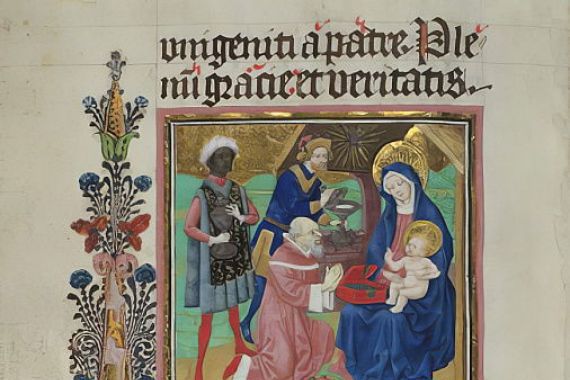 unigeniti a patre. Ple
nū gracie et veritatis.